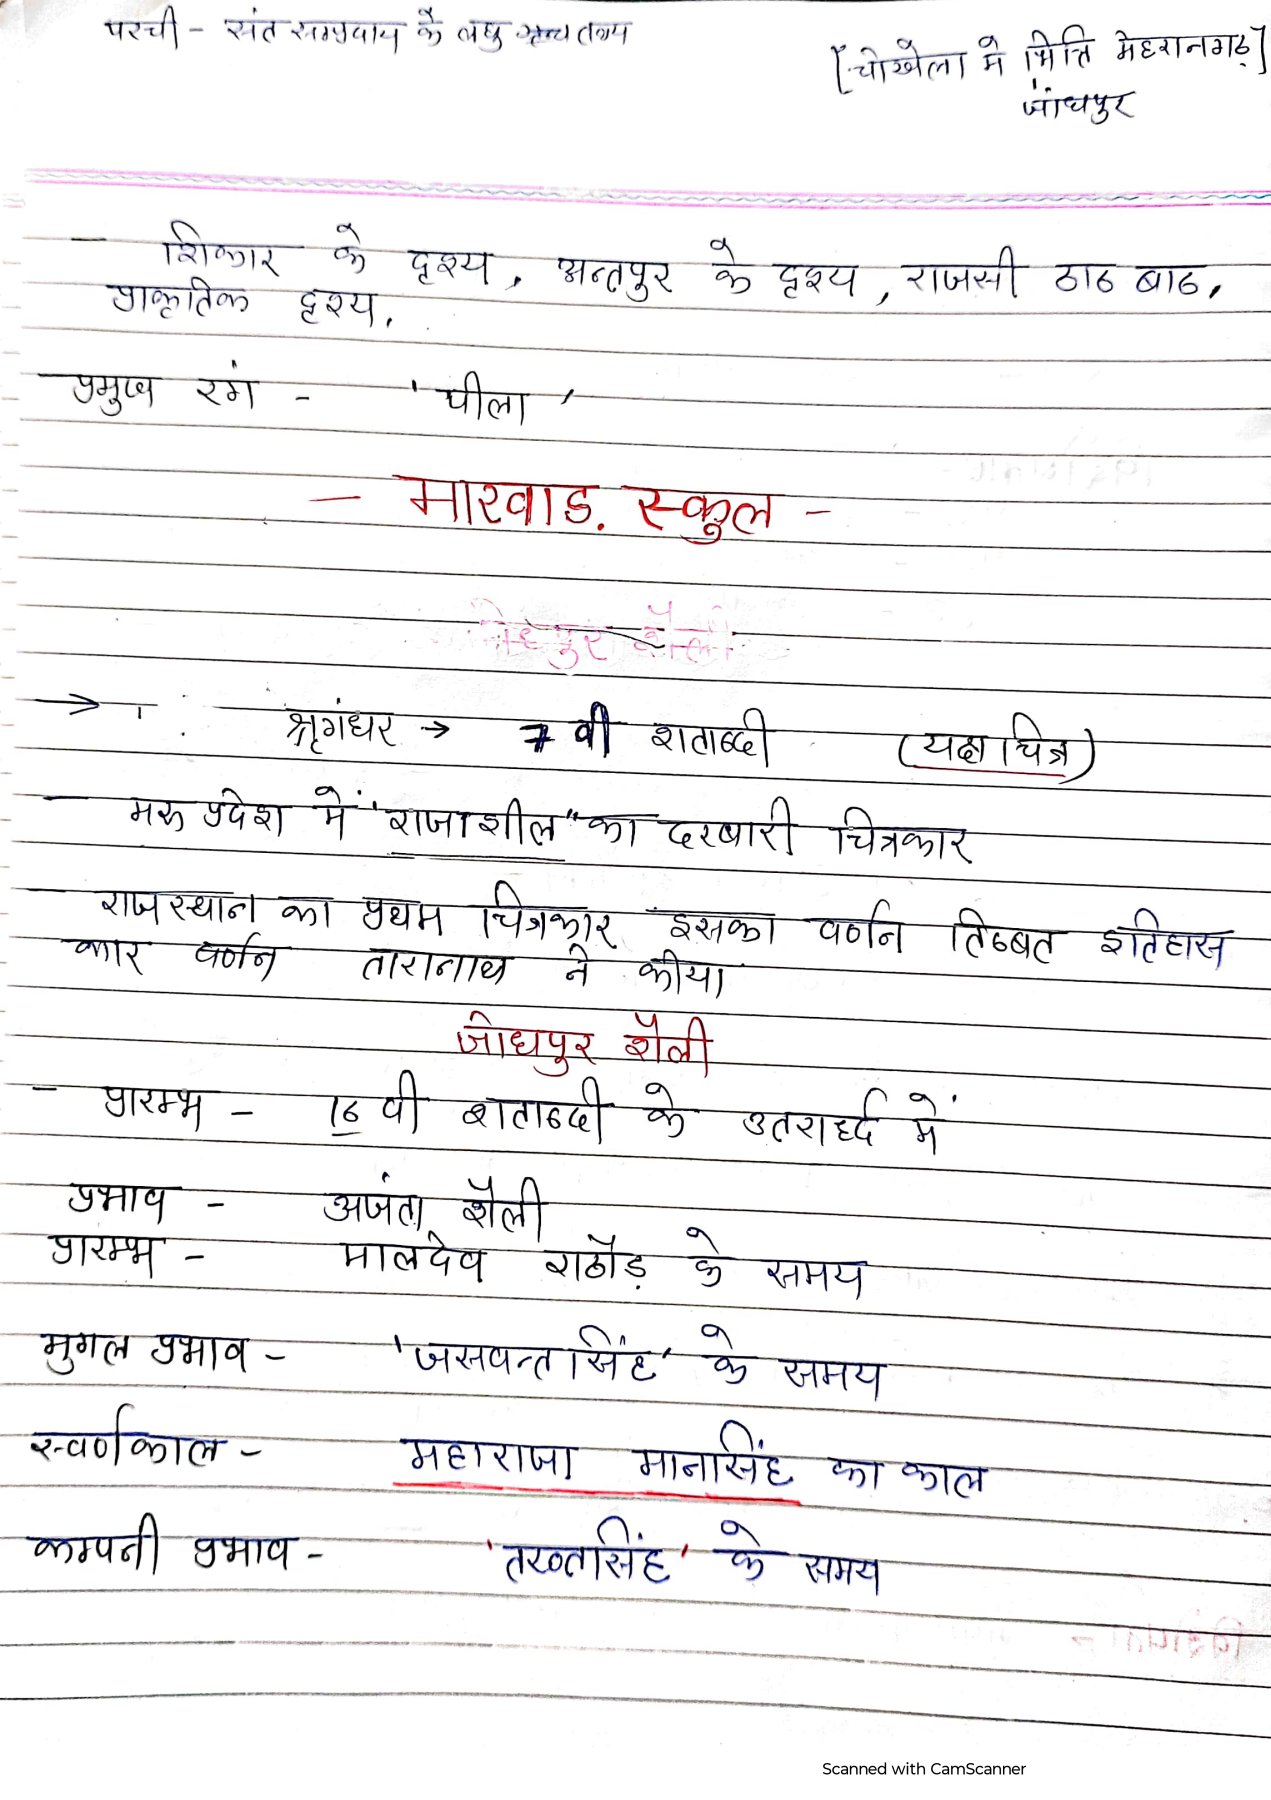 परची - संत सम्प्रदाय के लघु ग्रन्थ
[चोखेला मे भित्ति मेहरानगढ़]
जोधपुर
शिकार के दृश्य, अन्तपुर के दृश्य, राजसी ठाठ बाठ,
प्राकृतिक दृश्य.
प्रमुख रंग - 'पीला'
- मारवाड. स्कुल -
जोधपुर शैली
→ श्रृगंधर → 7 वी शताब्दी (यक्ष चित्र)
- मरू प्रदेश में "राजाशील" का दरबारी चित्रकार
राजस्थान का प्रथम चित्रकार इसका वर्णन तिब्बत इतिहास
कार वर्णन तारानाथ ने कीया
जोधपुर शैली
- प्रारम्भ - 16 वी शताब्दी के उतरार्ध्द में
प्रभाव - अजंता शैली
प्रारम्भ - मालदेव राठौड़ के समय
मुगल प्रभाव - 'जसवन्तसिंह' के समय
स्वर्णकाल - महाराजा मानसिंह का काल
कम्पनी प्रभाव - 'तख्तसिंह' के समय
Scanned with CamScanner